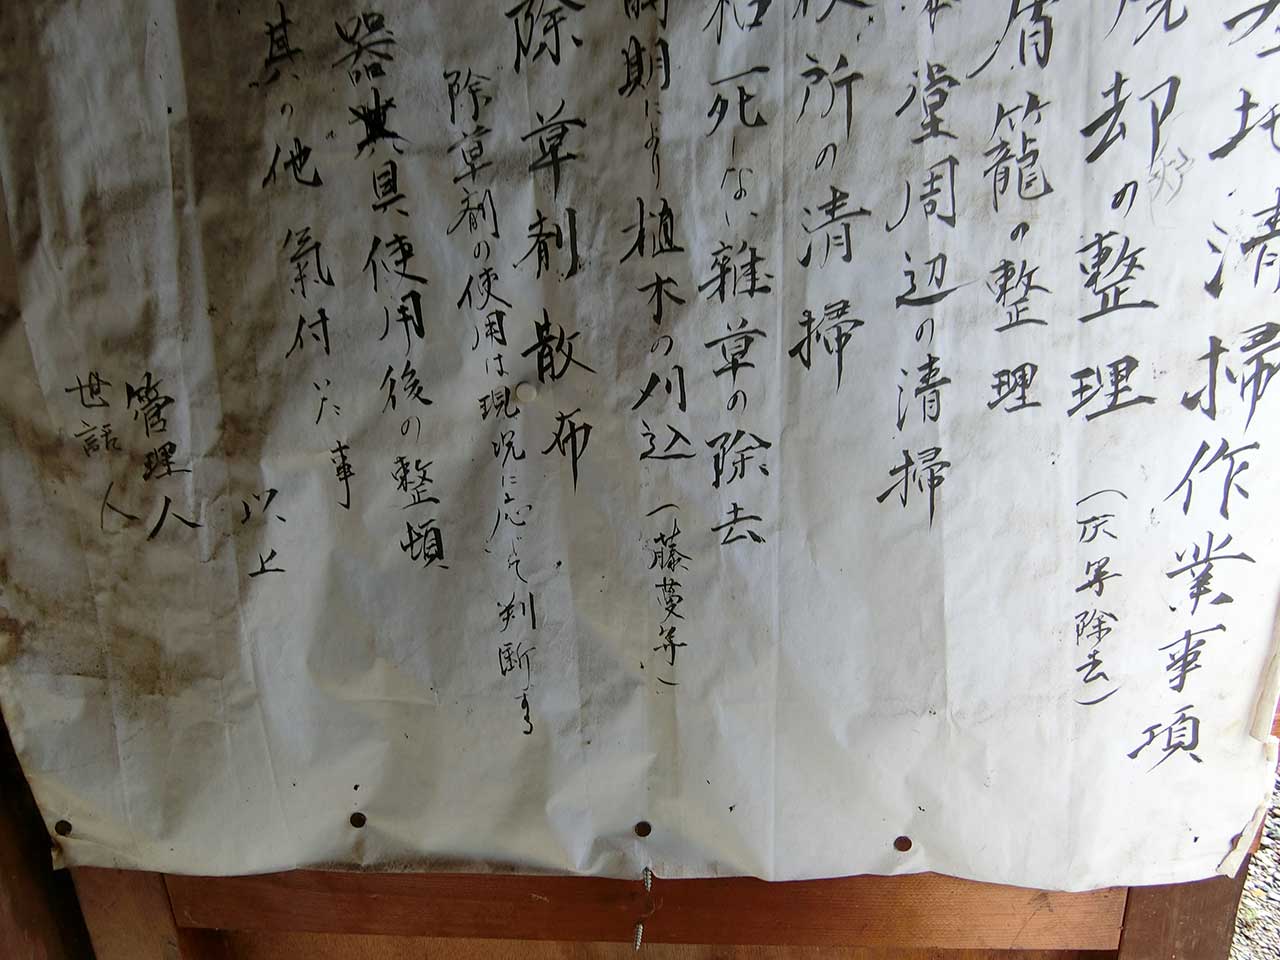 地清掃作業事項
却の整理(灰等除去)
屑籠の整理
堂周辺の清掃
所の清掃
枯死しない雑草の除去
時期により植木の刈込(藤蔓等)
除草剤散布
除草剤の使用は現況に応じて判断する
器具使用後の整頓
其の他氣付いた事
以上
管理人
世話人